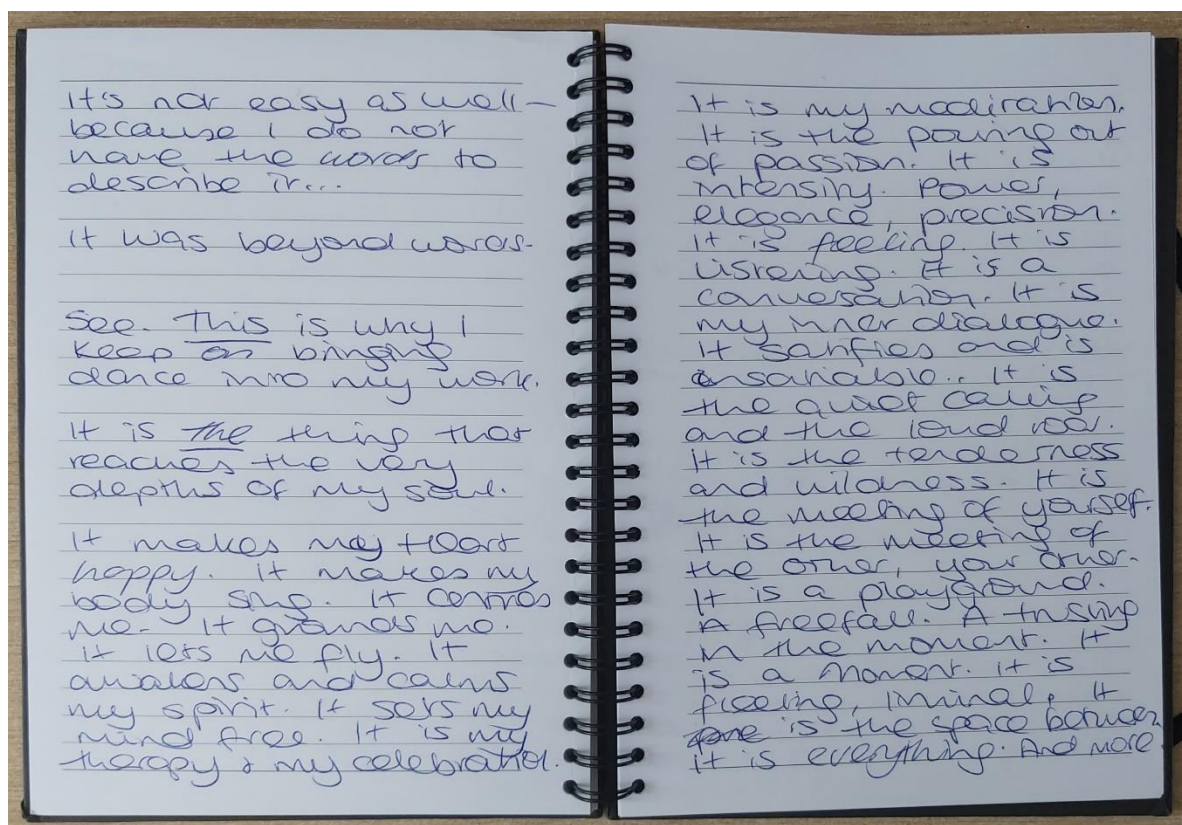 It's not easy as well –
because I do not
have the words to
describe it...
It was beyond words.
See. This is why I
keep on bringing
dance into my work.
It is the thing that
reaches the very
depths of my soul.
It makes my heart
happy. It makes my
body sing. It centres
me. It grounds me.
It lets me fly. It
awakens and calms
my spirit. It sets my
mind free. It is my
therapy & my celebration.
It is my medication.
It is the pouring out
of passion. It is
intensity. Power,
elegance, precision.
It is feeling. It is
listening. It is a
conversation. It is
my inner dialogue.
It satisfies and is
insatiable. It is
the quiet calling
and the loud roar.
It is the tenderness
and wildness. It is
the meeting of yourself.
It is the meeting of
the other, your other.
It is a playground.
A freefall. A trusting
in the moment. It
is a moment. It is
fleeting, liminal, it
is the space between
it is everything. And more